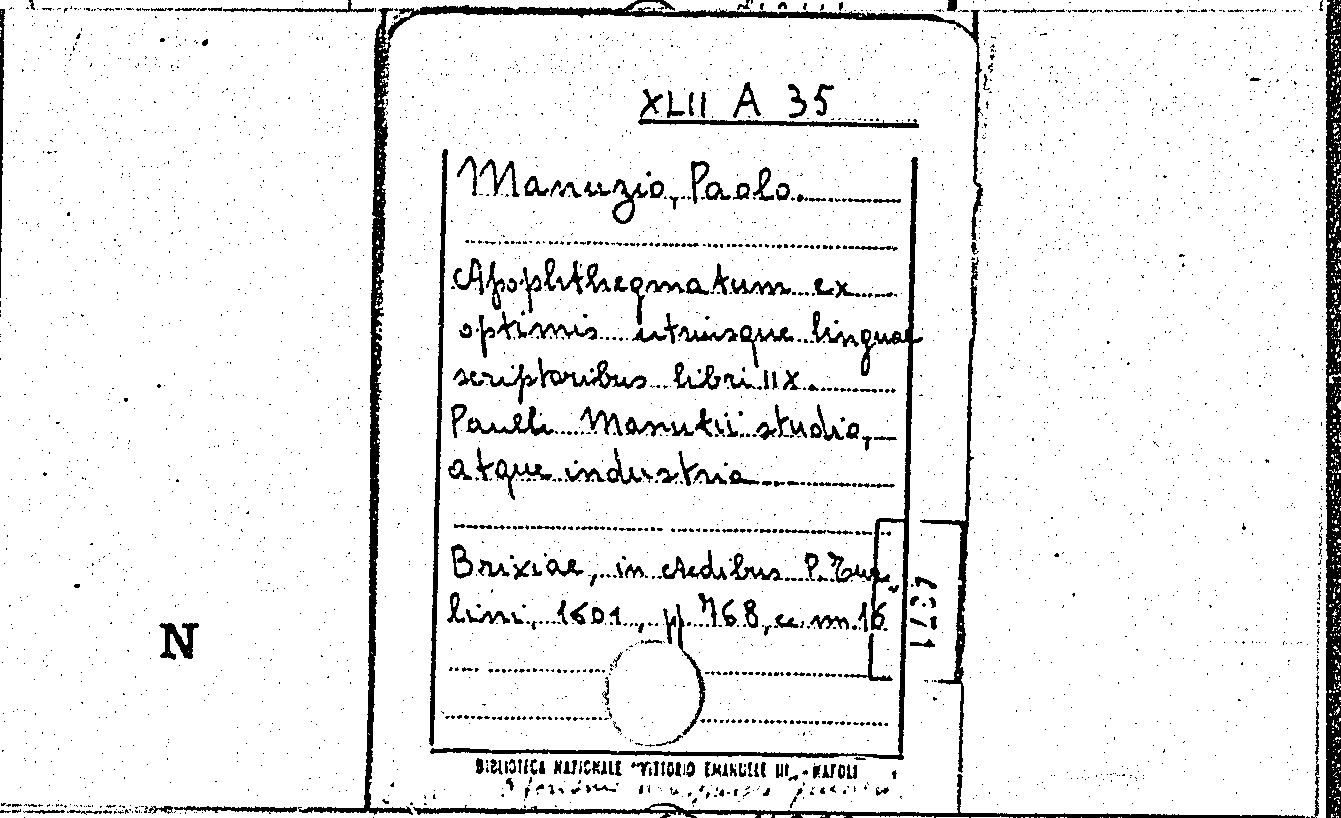 XLII A 35
Manuzio, Paolo.
Apophthegmatum ex
optimis utriusque linguae
scriptoribus libri IIX.
Paulli Manutii studio,
atque industria
Brixiae, in Aedibus P. Tur,
lini, 1601, pp. 768, cc. nn. 16
N
BIBLIOTECA NAZIONALE "VITTORIO EMANUELE III" - NAPOLI